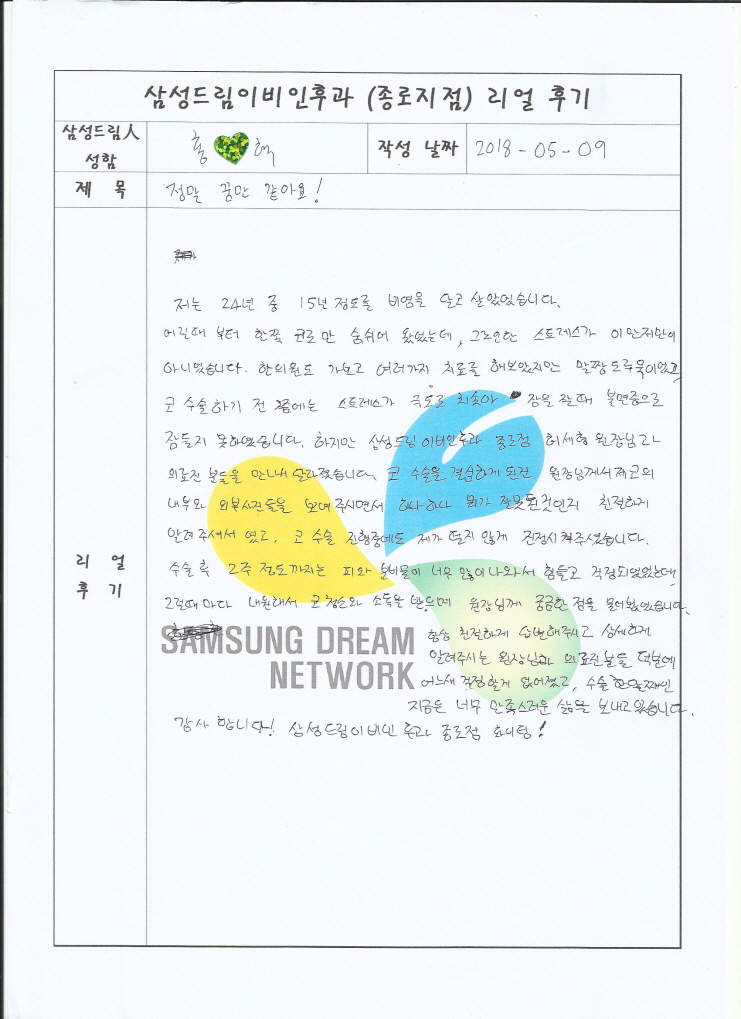 삼성드림이비인후과 (종로지점) 리얼 후기
삼성드림人 성함
홍 혁
작성 날짜
2018-05-09
제 목
정말 꿈만 같아요!
리 얼 후 기
저는 24년 중 15년 정도를 비염을 달고 살았었습니다.
어릴때 부터 한쪽 코로만 숨쉬어 왔었는데, 그로인한 스트레스가 이만저만이
아니었습니다. 한의원도 가보고 여러가지 치료를 해보았지만 말짱 도루묵이었고
코 수술하기 전 쯤에는 스트레스가 극도로 치솟아 잠을 잘때 불면증으로
잠들지 못하였습니다. 하지만 삼성드림이비인후과 종로점 허세형 원장님과
의료진 분들을 만나서 달라졌습니다. 코 수술을 결심하게 된건 원장님께서 제 코의
내부와 외부사진들을 보여주시면서 하나하나 뭐가 잘못된것인지 친절하게
알려주셔서 였고, 코 수술 진행중에도 제가 떨지 않게 진정시켜주셨습니다.
수술 후 2주 정도까지는 피와 분비물이 너무 많이 나와서 힘들고 걱정되었었는데
그럴때마다 내원해서 코청소와 소독을 받으며 원장님께 궁금한 점을 물어봤었습니다.
SAMSUNG DREAM
NETWORK
항상 친절하게 답변해주시고 상세하게
알려주시는 원장님과 의료진분들 덕분에
어느새 걱정할게 없어졌고, 수술 한달째인
지금은 너무 만족스러운 삶을 보내고있습니다.
감사 합니다! 삼성드림이비인후과 종로점 화이팅!